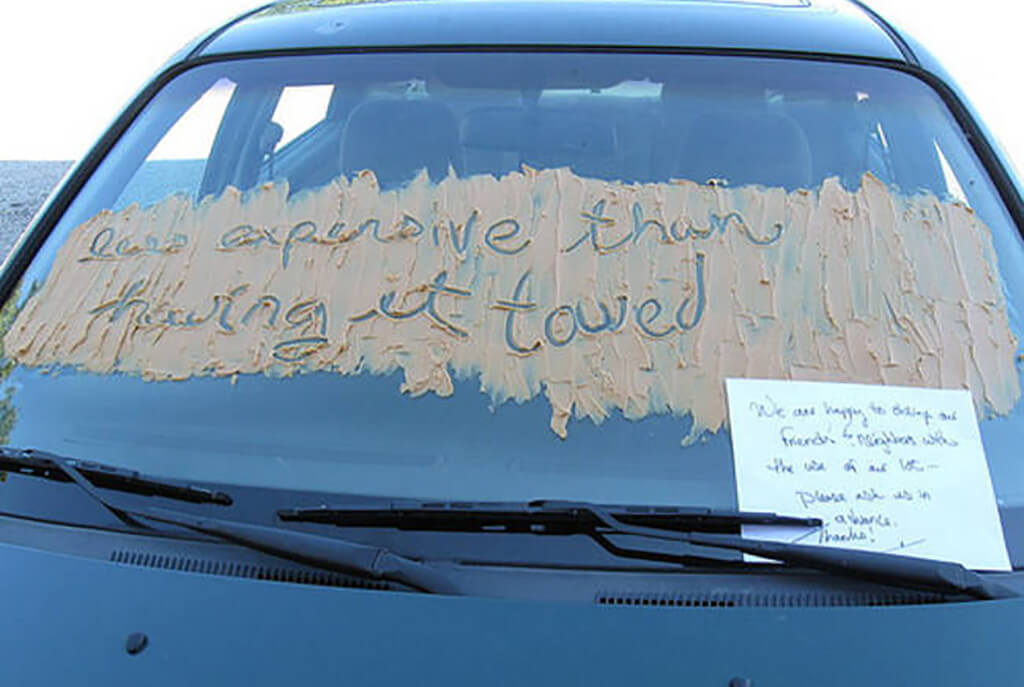 less expensive than
having it towed
We are happy to oblige our
friends & neighbors with
the use of our lot —
please ask us in
advance.
Thanks!